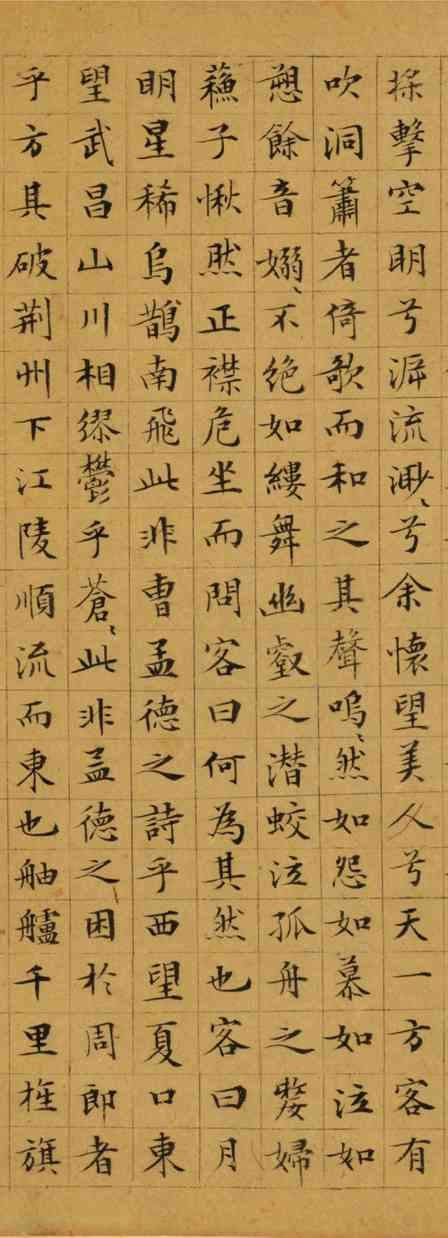 擊空明兮泝流渺〻兮余懷望美人兮天一方客有
吹洞簫者倚歌而和之其聲嗚〻然如怨如慕如泣如
愬餘音嫋〻不絶如縷舞幽叡之潜蛟泣孤舟之嫠婦
蘓子愀然正襟危坐而問客曰何為其然也客曰月
明星稀烏鵲南飛此非曹孟德之詩乎西望夏口東
望武昌山川相繆鬱乎蒼〻此非孟德之困於周郎者
乎方其破荆州下江陵順流而東也舳艫千里旌旗